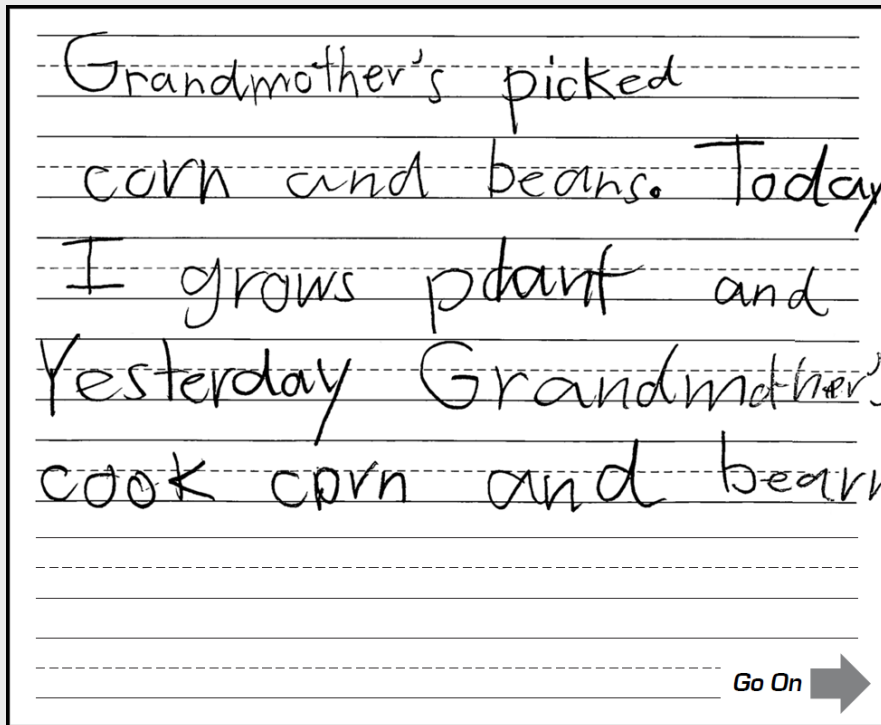 Grandmother's picked
corn and beans. Today
I grows plant and
Yesterday Grandmother's
cook corn and bearn
Go On